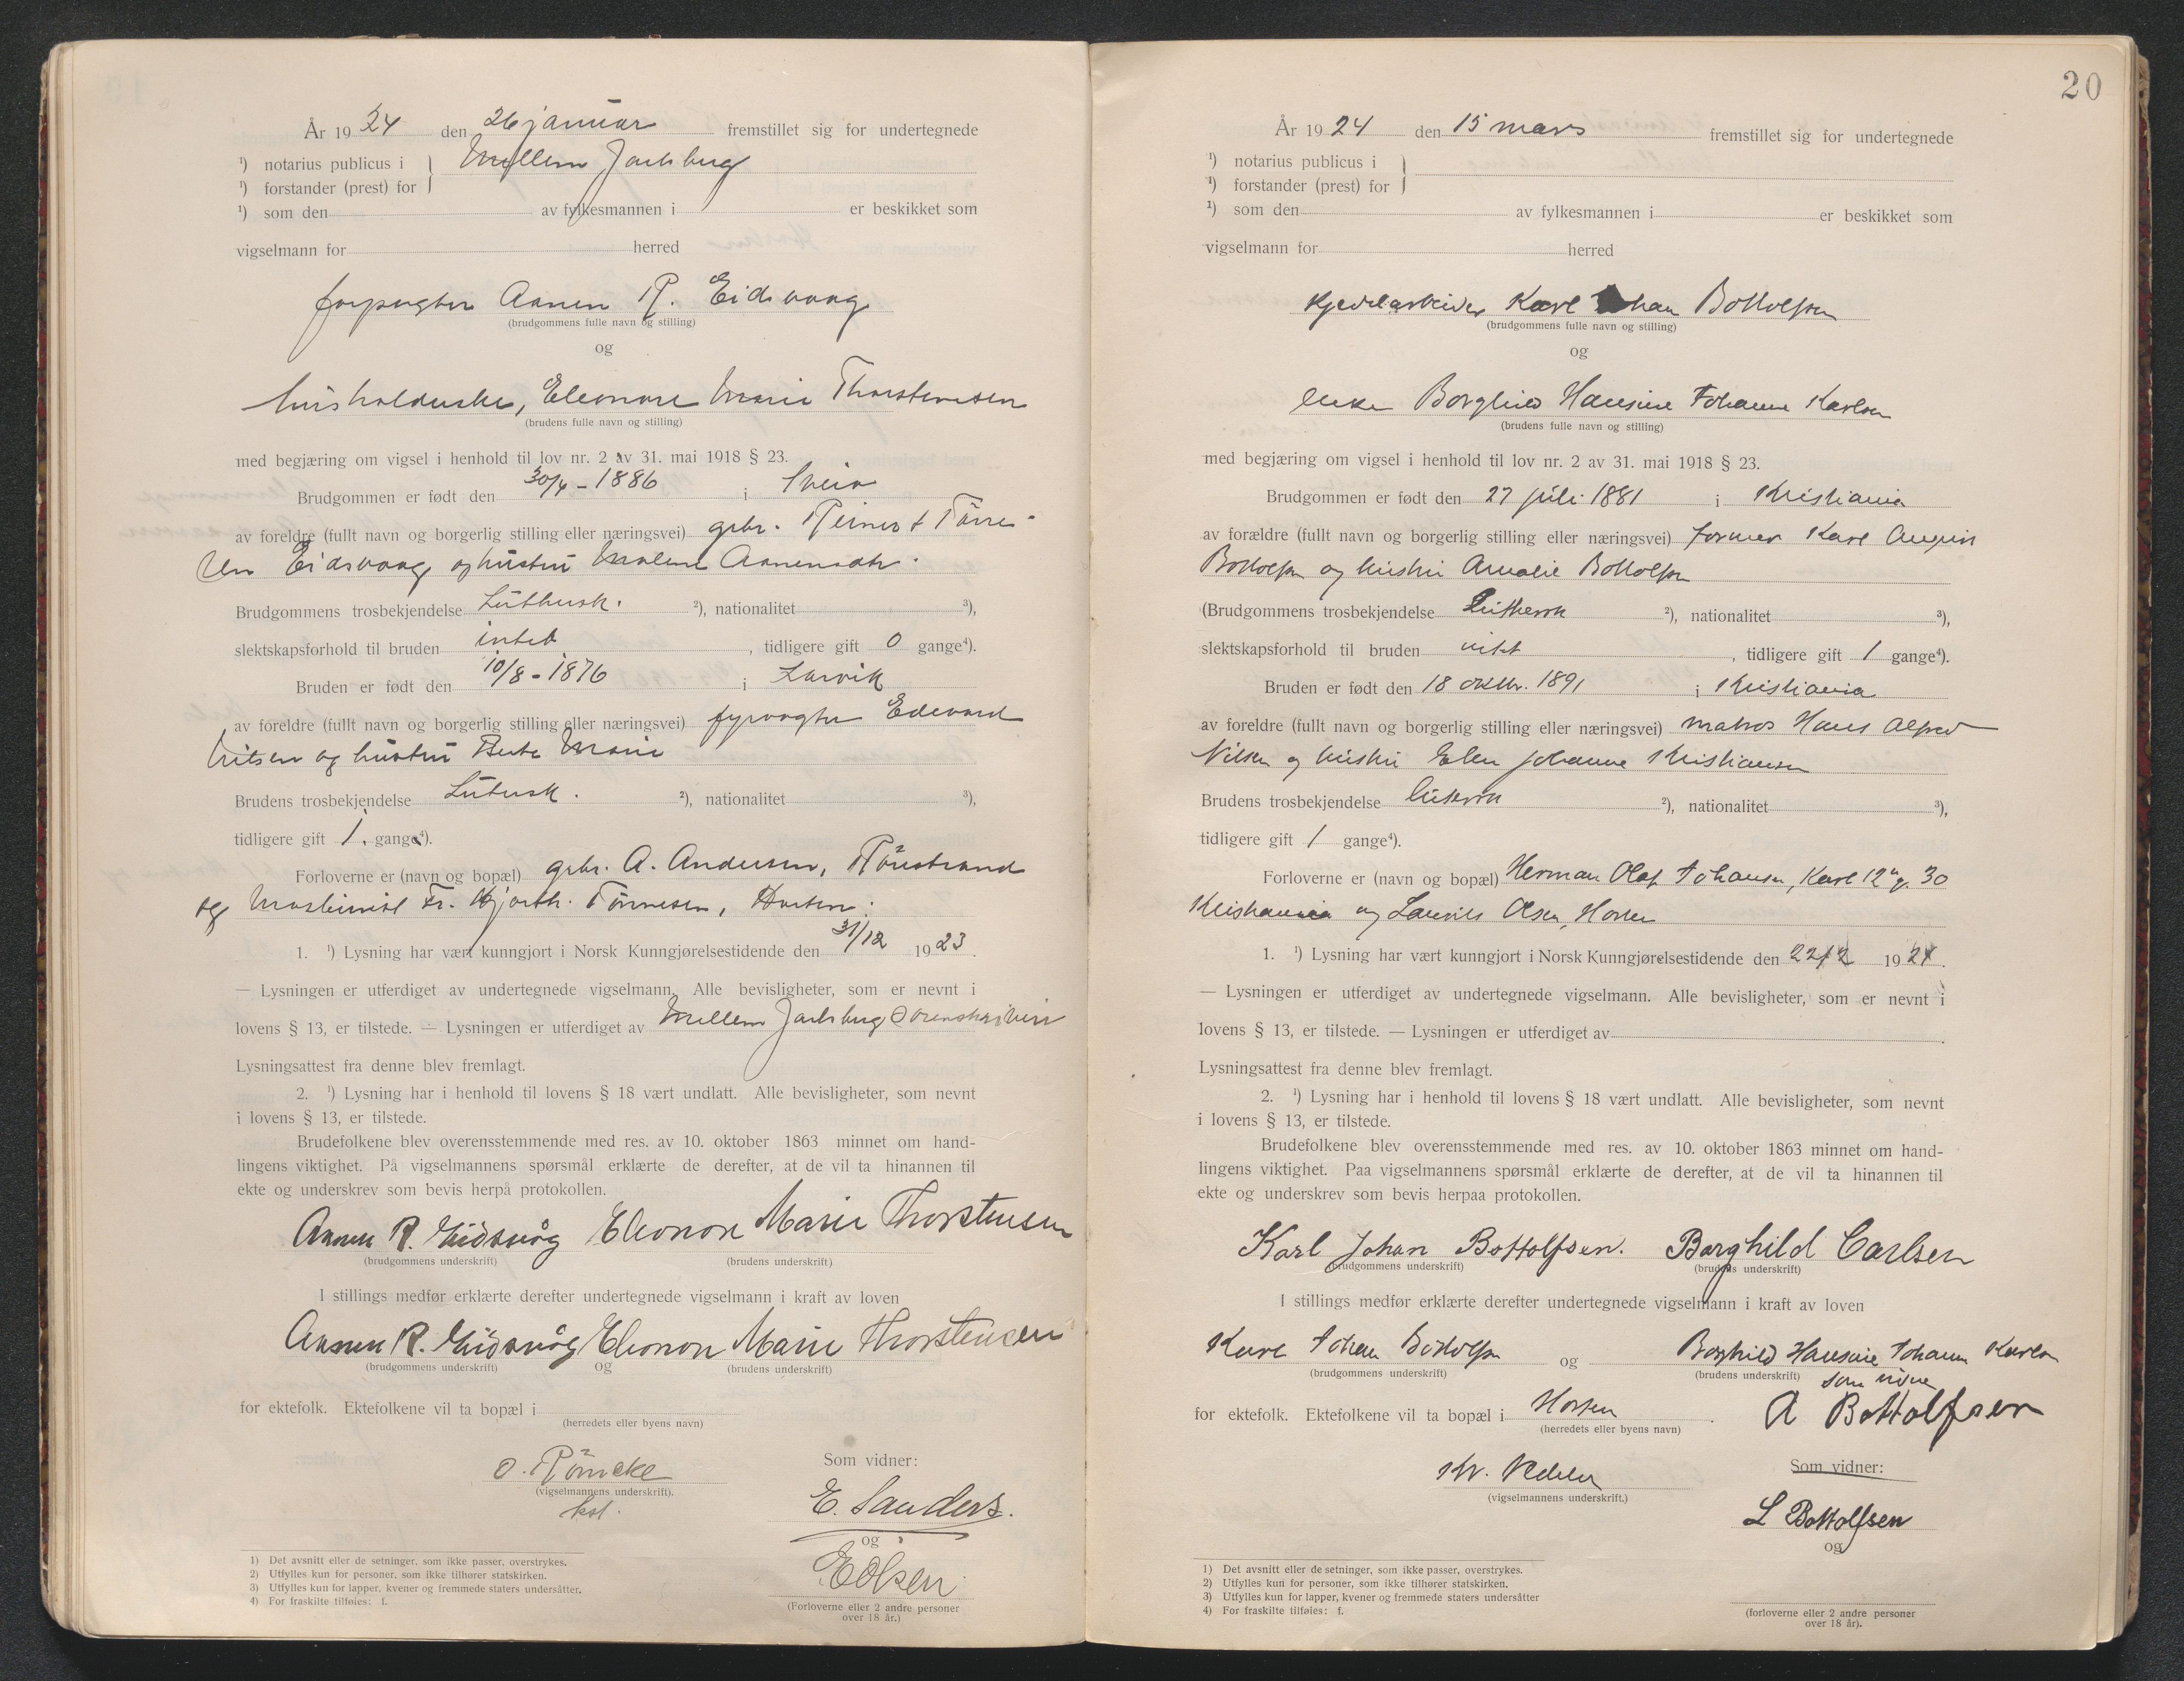 År 19 24 den 26 januar fremstillet sig for undertegnede
¹) notarius publicus i
Mellem Jarlsberg
¹) forstander (prest) for
¹) som den av fylkesmannen i er beskikket som
vigselmann for herred
forpagter Aanen R. Eidsvaag
(brudgommens fulle navn og stilling)
og
husholderske, Eleonore Marie Thorstensen
(brudens fulle navn og stilling)
med begjæring om vigsel i henhold til lov nr. 2 av 31. mai 1918 § 23.
Brudgommen er født den 30/4 - 1886 i Sveio
av foreldre (fullt navn og borgerlig stilling eller næringsvei) grbr. Reinert Tørre-
sen Eidsvaag og hustru Malene Aanensdtr.
Brudgommens trosbekjendelse Luthersk. ²), nationalitet ³),
slektskapsforhold til bruden intet, tidligere gift 0 gange⁴).
Bruden er født den 10/8 - 1876 i Larvik
av foreldre (fullt navn og borgerlig stilling eller næringsvei) fyrvogter Edevard
Nilsen og hustru Berte Marie
Brudens trosbekjendelse Lutersk. ²), nationalitet ³),
tidligere gift 1. gange⁴).
Forloverne er (navn og bopæl) grbr. A. Andersen, Rørestrand
og Maskinist Fr. Hjorth. Tønnesen, Horten.
1. ¹) Lysning har vært kunngjort i Norsk Kunngjørelsestidende den 31/12 1923.
— Lysningen er utferdiget av undertegnede vigselmann. Alle bevisligheter, som er nevnt i
lovens § 13, er tilstede. — Lysningen er utferdiget av Mellem Jarlsberg Sorenskriveri
Lysningsattest fra denne blev fremlagt.
2. ¹) Lysning har i henhold til lovens § 18 vært undlatt. Alle bevisligheter, som nevnt
i lovens § 13, er tilstede.
Brudefolkene blev overensstemmende med res. av 10. oktober 1863 minnet om hand-
lingens viktighet. På vigselmannens spørsmål erklærte de derefter, at de vil ta hinannen til
ekte og underskrev som bevis herpå protokollen.
Aanen R. Eidsvåg Eleonore Marie Thorstensen
(brudgommens underskrift) (brudens underskrift)
I stillings medfør erklærte derefter undertegnede vigselmann i kraft av loven
Aanen R. Eidsvåg Eleonore Marie Thorstensen
(brudgommens underskrift) og (brudens underskrift)
for ektefolk. Ektefolkene vil ta bopæl i
(herredets eller byens navn)
O. Römcke
(vigselmannens underskrift).
kst.
Som vidner:
E. Sanders.
og
E Olsen
(Forloverne eller 2 andre personer
over 18 år.)
1) Det avsnitt eller de setninger, som ikke passer, overstrykes.
2) Utfylles kun for personer, som ikke tilhører statskirken.
3) Utfylles kun for lapper, kvener og fremmede staters undersåtter.
4) For fraskilte tilføies: f.
20
År 19 24 den 15 mars fremstillet sig for undertegnede
¹) notarius publicus i
¹) forstander (prest) for
¹) som den av fylkesmannen i er beskikket som
vigselmann for herred
Kjedelarbeider Karl Johan Bottolfsen
(brudgommens fulle navn og stilling)
og
enke Borghild Hansine Johanne Karlsen
(brudens fulle navn og stilling)
med begjæring om vigsel i henhold til lov nr. 2 av 31. mai 1918 § 23.
Brudgommen er født den 27 juli 1881 i Kristiania
av forældre (fullt navn og borgerlig stilling eller næringsvei) former Karl August
Bottolfsen og hustru Amalie Bottolfsen
(Brudgommens trosbekjendelse Luthersk ²), nationalitet ³),
slektskapsforhold til bruden intet, tidligere gift 1 gange⁴).
Bruden er født den 18 oktbr. 1891 i Kristiania
av foreldre (fullt navn og borgerlig stilling eller næringsvei) matros Hans Alfred
Nilsen og hustru Elen Johanne Kristiansen
Brudens trosbekjendelse lutersk ²), nationalitet ³),
tidligere gift 1 gange⁴).
Forloverne er (navn og bopæl) Herman Olaf Johansen, Karl 12's g. 30
Kristiania og Laurits Olsen, Horten
1. ¹) Lysning har vært kunngjort i Norsk Kunngjørelsestidende den 22/2 1924.
— Lysningen er utferdiget av undertegnede vigselmann. Alle bevisligheter, som er nevnt i
lovens § 13, er tilstede. — Lysningen er utferdiget av
Lysningsattest fra denne blev fremlagt.
2. ¹) Lysning har i henhold til lovens § 18 vært undlatt. Alle bevisligheter, som nevnt
i lovens § 13, er tilstede.
Brudefolkene blev overensstemmende med res. av 10. oktober 1863 minnet om hand-
lingens viktighet. Paa vigselmannens spørsmål erklærte de derefter, at de vil ta hinannen til
ekte og underskrev som bevis herpaa protokollen.
Karl Johan Bottolfsen. Borghild Carlsen
(brudgommens underskrift) (brudens underskrift)
I stillings medfør erklærte derefter undertegnede vigselmann i kraft av loven
Karl Johan Bottolfsen og Borghild Hansine Johanne Karlsen
(brudgommens underskrift) (brudens underskrift)
som vidne
for ektefolk. Ektefolkene vil ta bopæl i Horten. A Bottolfsen
(herredets eller byens navn)
(vigselmannens underskrift.)
Som vidner:
L Bottolfsen
og
(forloverne eller 2 andre personer
over 18 år).
1) Det avsnitt eller de setninger, som ikke passer, overstrykes.
2) Utfylles kun for personer, som ikke tilhører statskirken.
3) Utfylles kun for lapper, kvener og fremmede staters undersåtter
4) For fraskilte tilføies: f.